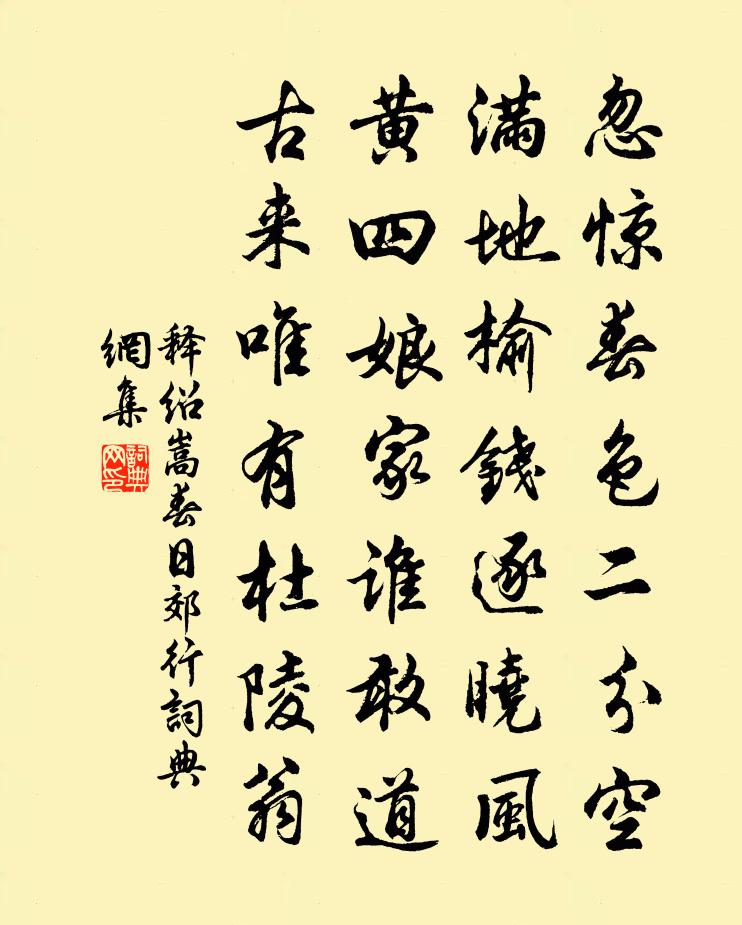 忽惊春色二分空
满地榆錢逐曉風
黄四娘家谁敢道
古来唯有杜陵翁
释绍嵩春日郊行詞典
網集
詞典网印